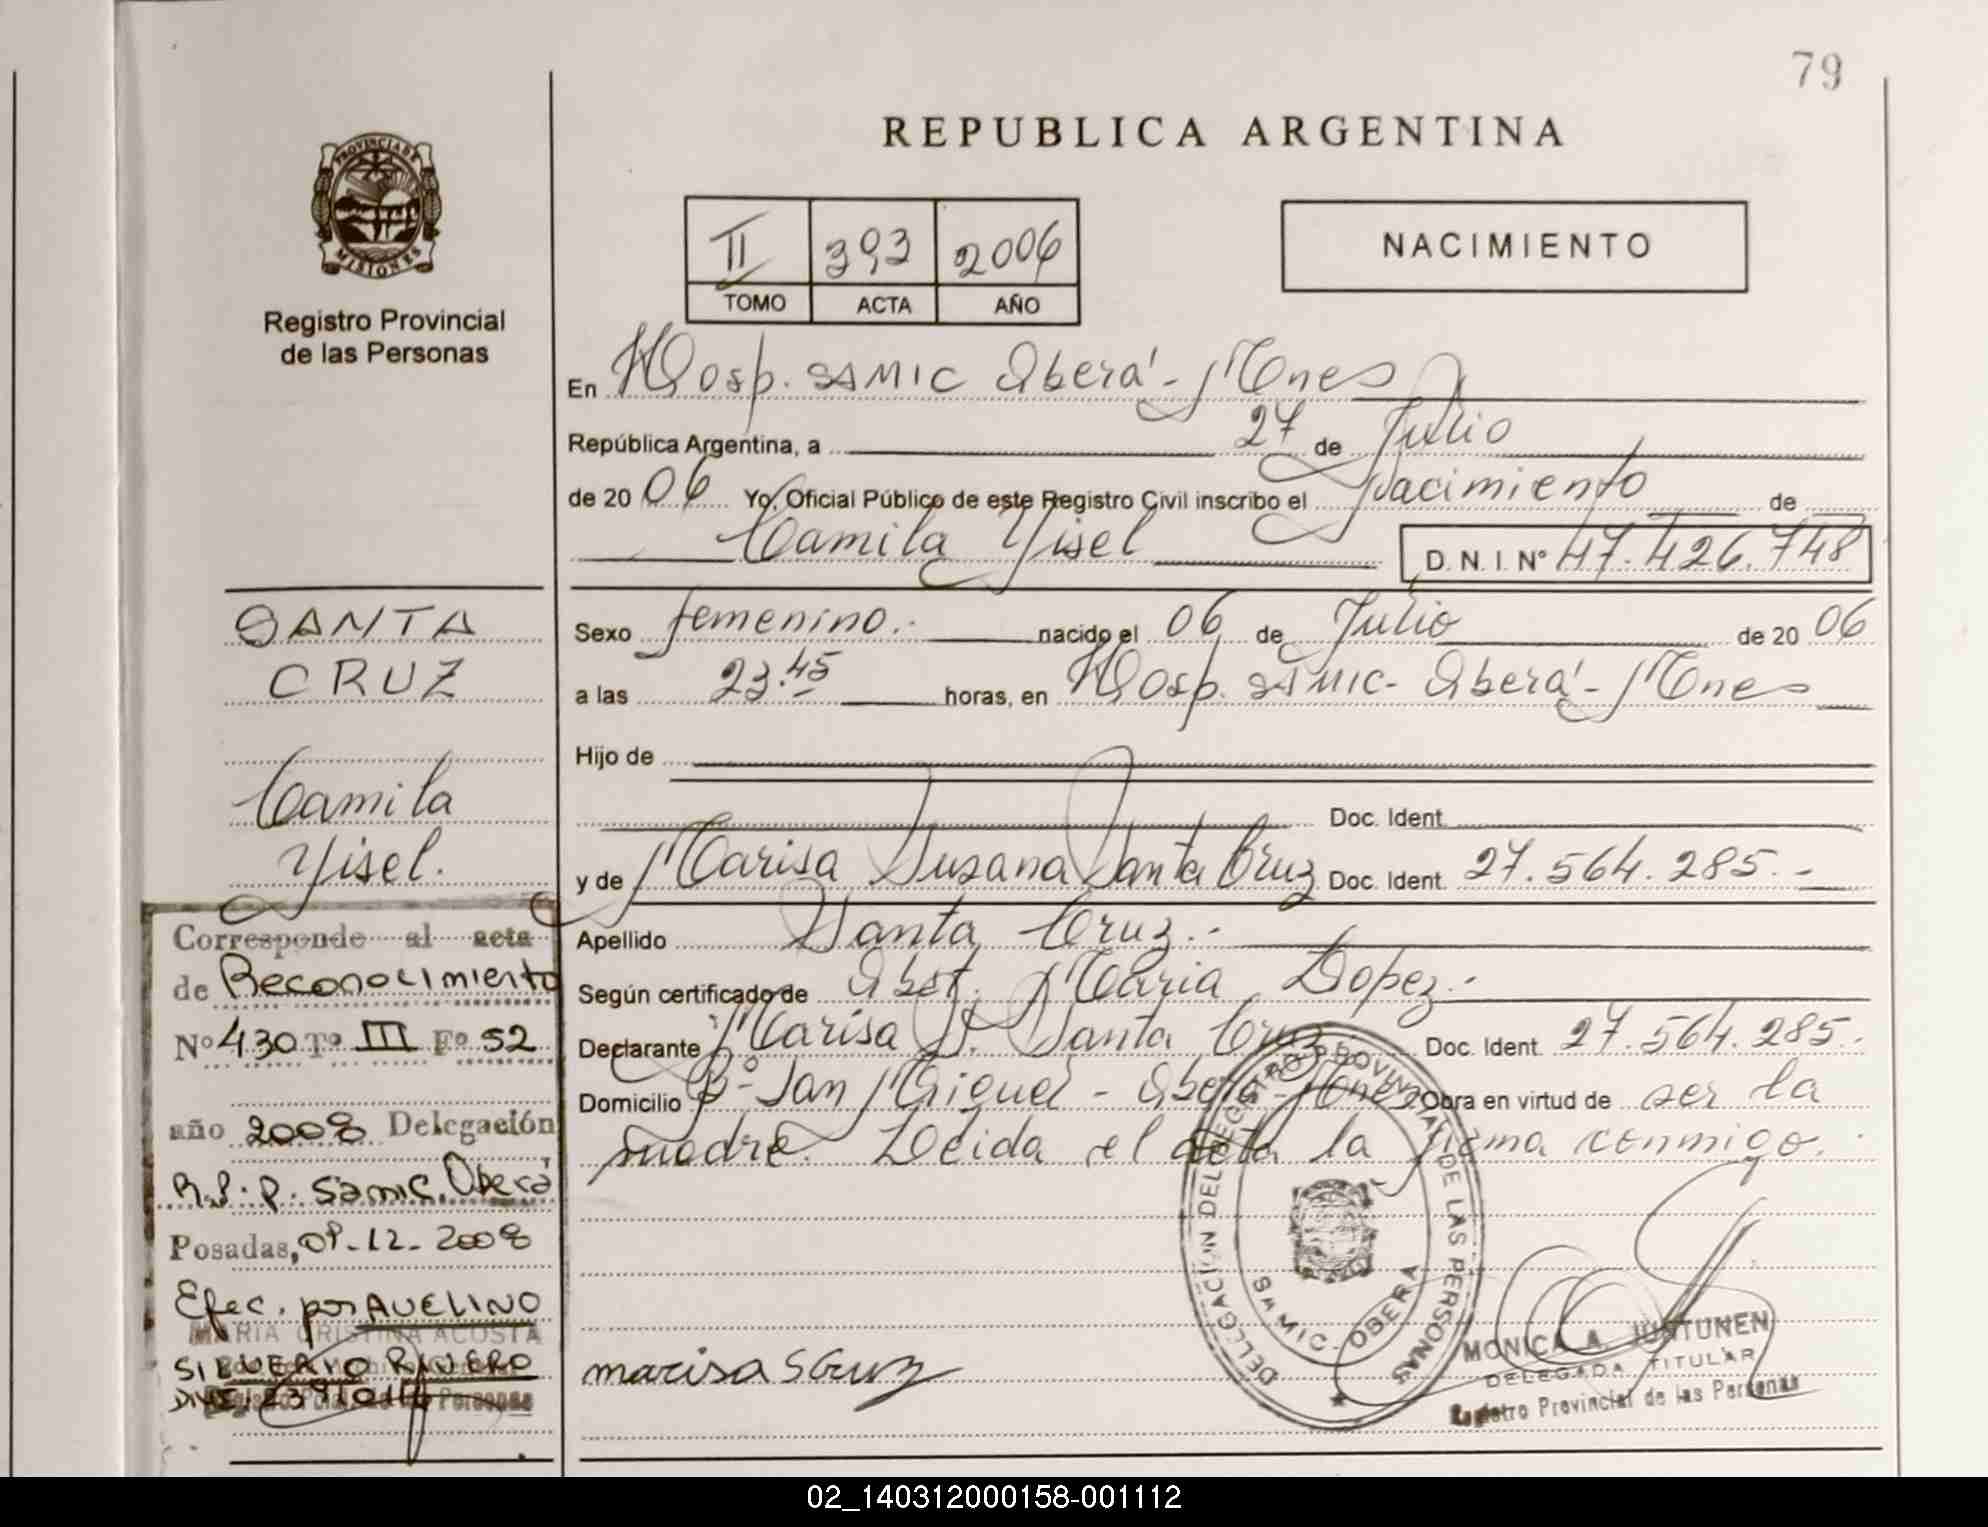 79
REPUBLICA ARGENTINA
PROVINCIA DE
MISIONES
Registro Provincial
de las Personas
II 393 2006
TOMO ACTA AÑO
NACIMIENTO
En Hosp. SAMIC Oberá - Mnes
República Argentina, a 27 de Julio
de 20 06 Yo, Oficial Público de este Registro Civil inscribo el Nacimiento de
Camila Yisel D.N.I. Nº 47.426.748
Sexo femenino.- nacido el 06 de Julio de 20 06
a las 23.45 horas, en Hosp. SAMIC - Oberá - Mnes
Hijo de
Doc. Ident.
y de Marisa Susana Santa Cruz Doc. Ident. 27.564.285.-
Apellido Santa Cruz.-
Según certificado de Obst. Maria Lopez.-
Declarante Marisa S. Santa Cruz Doc. Ident. 27.564.285.-
Domicilio Bº San Miguel - Oberá - Mnes Obra en virtud de ser la
madre. Leida el acta la firma conmigo.-
marisa SCruz
DELEGACION DEL REGISTRO PROVINCIAL DE LAS PERSONAS
SAMIC. OBERA
MONICA A. JUNTUNEN
DELEGADA TITULAR
Registro Provincial de las Personas
SANTA
CRUZ
Camila
Yisel.
Corresponde al acta
de Reconocimiento
Nº 430 Tº III Fº 52
año 2008 Delegación
R.P.P. Samic. Oberá
Posadas, 09-12-2008
Efec. por AVELINO
MARIA CRISTINA ACOSTA
SILVERIO RIVERO
02_140312000158-001112